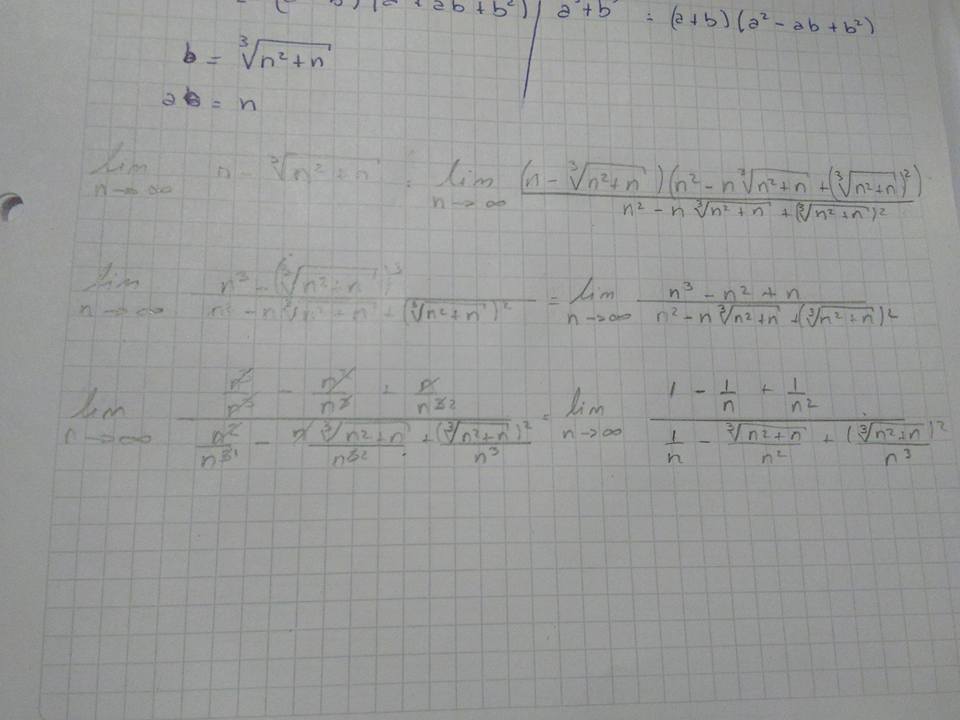 (a² + ab + b²) | a³ + b³ = (a+b)(a² - ab + b²)
b = ∛(n² + n)
ab = n
lim n→∞ n - ∛(n² + n) = lim n→∞ (n - ∛(n²+n))(n² - n∛(n²+n) + (∛(n²+n))²) / (n² - n∛(n²+n) + (∛(n²+n))²)
lim n→∞ (n³ - (∛(n²+n))³) / (n³ - n∛(n²+n) + (∛(n²+n))²) = lim n→∞ (n³ - n² + n) / (n² - n∛(n²+n) + (∛(n²+n))²)
lim n→∞ (n³/n³ - n²/n³ + n/n³2) / (n²/n³1 - n∛(n²+n)/n³2 + (∛(n²+n))²/n³) = lim n→∞ (1 - 1/n + 1/n²) / (1/n - ∛(n²+n)/n² + (∛(n²+n))²/n³)